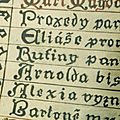 Proxedy pan
Eliáše pror
Rufiny pan
Arnolda bis
Alexia vyzn